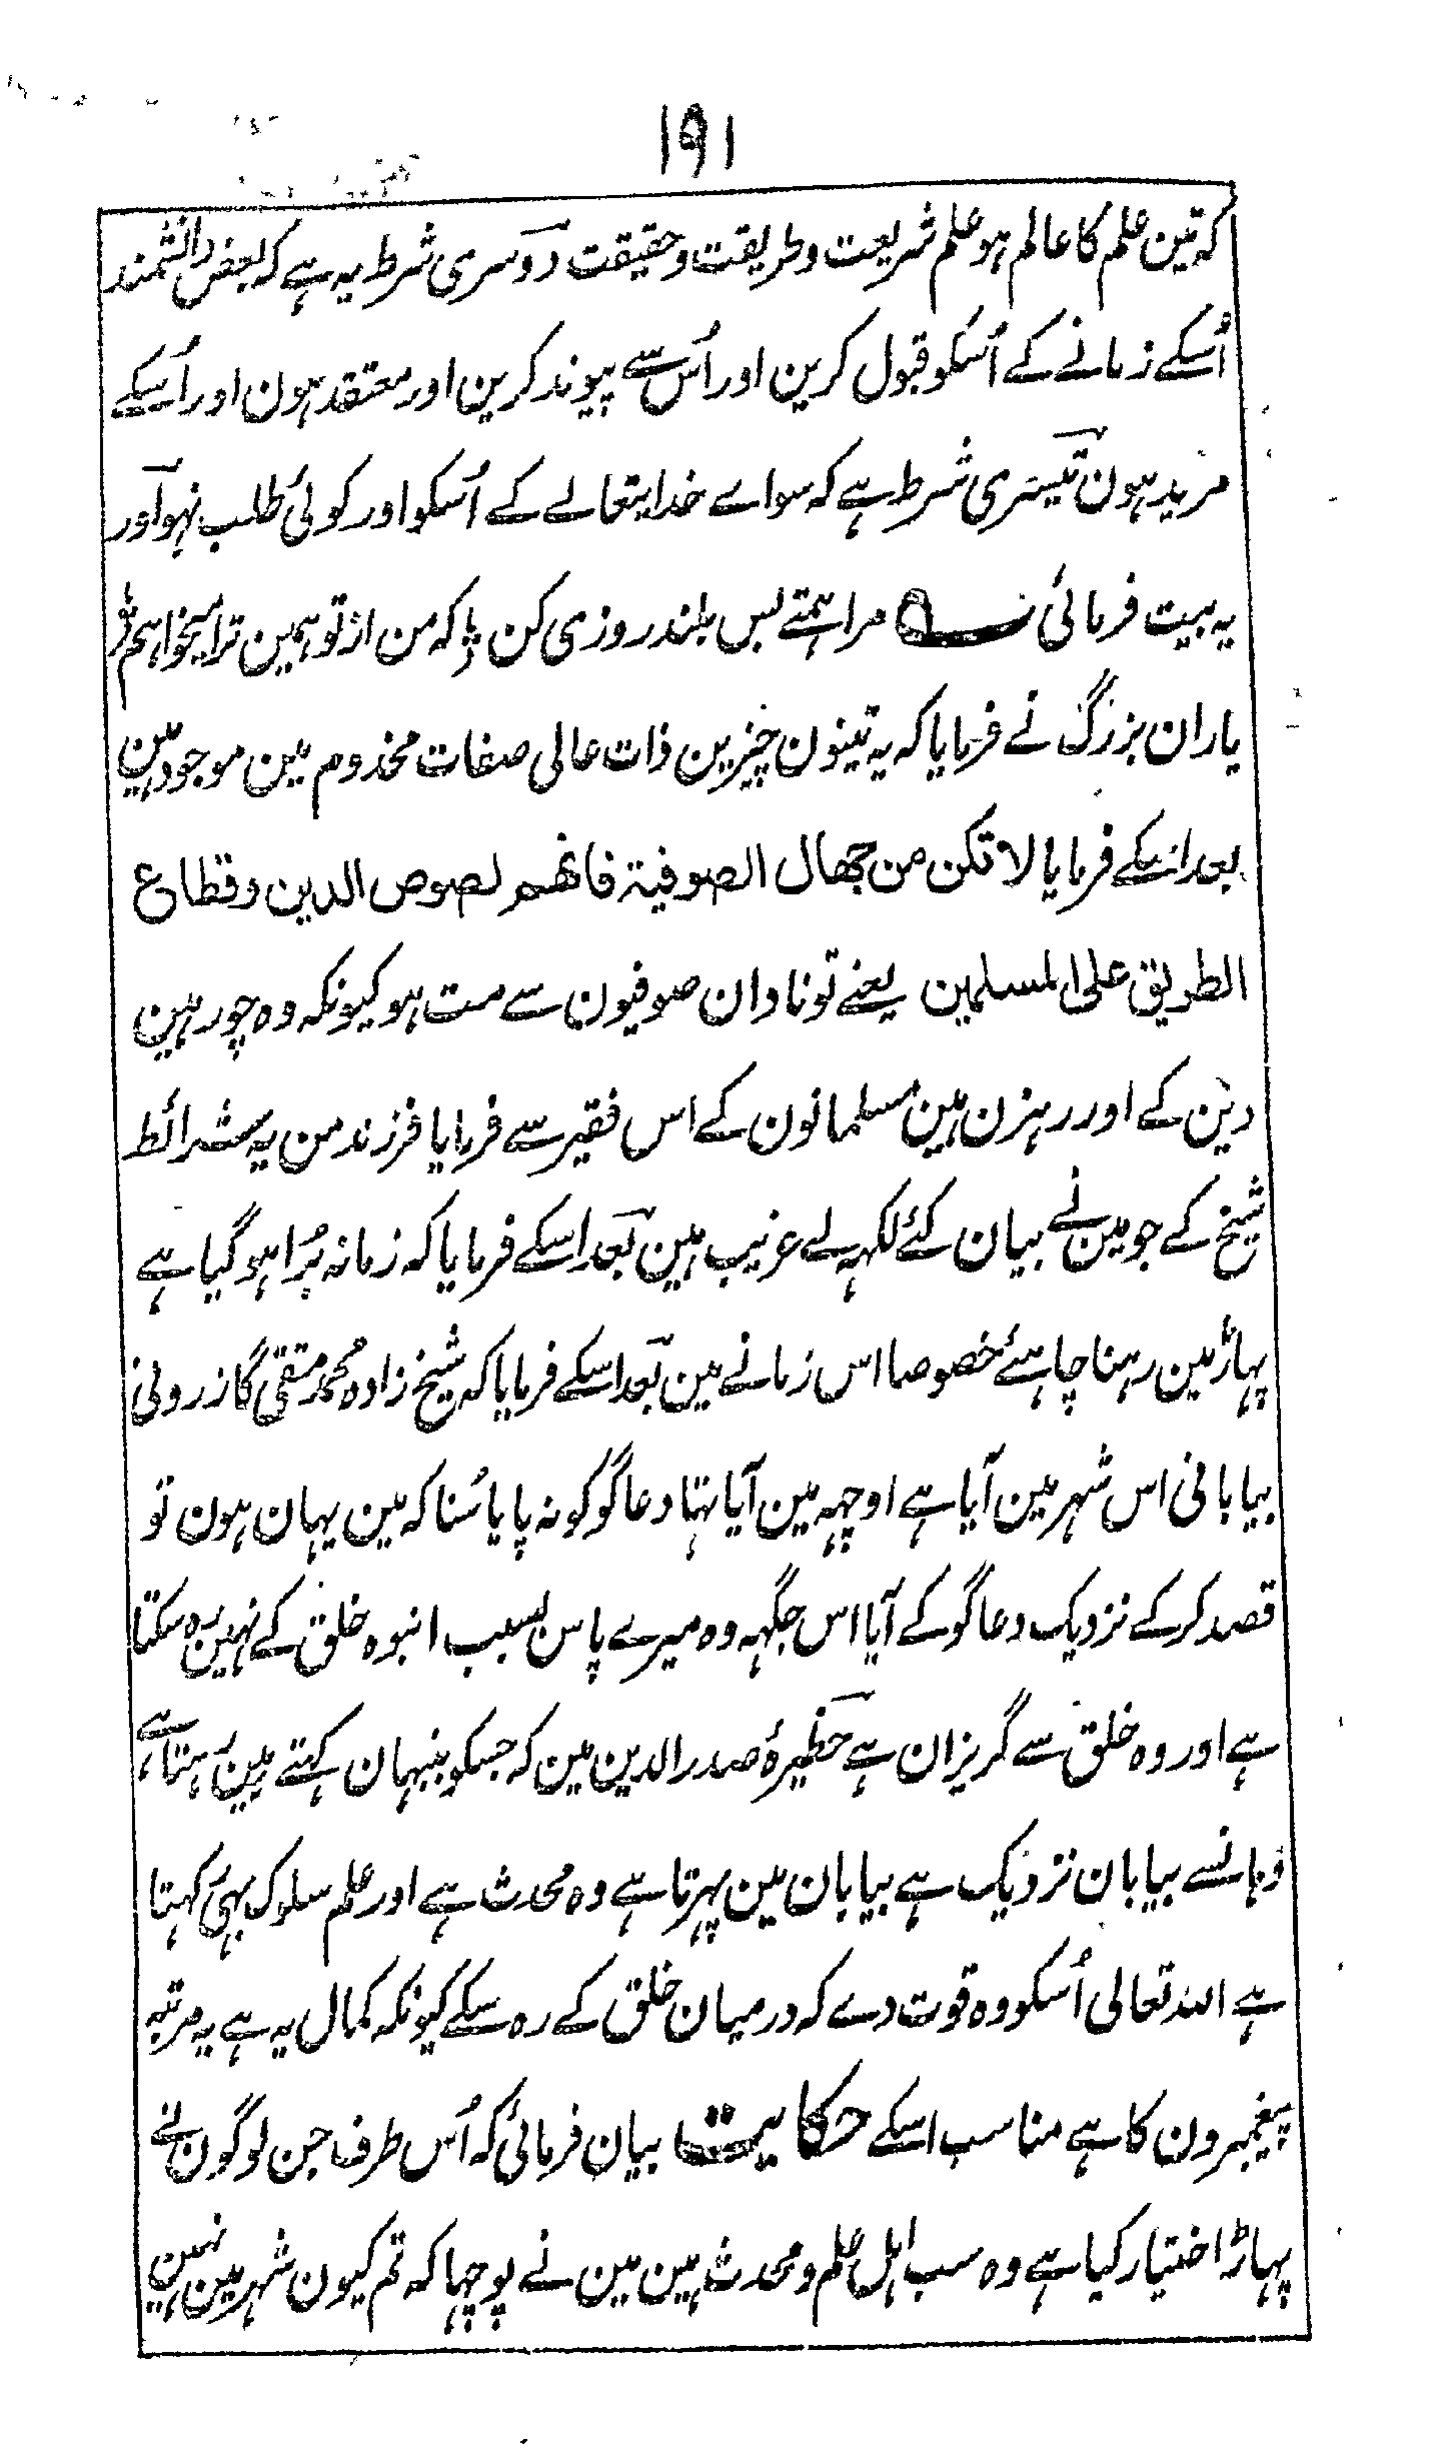 ۱۹۱
کہ تین علم کا عالم ہو علم شریعت و طریقت و حقیقت دوسری شرط یہ ہے کہ بعض دانشمند
اُسکے زمانے کے اُسکو قبول کرین اور اُس سے پیوند کرین اور معتقد ہون اور اُسکے
مرید ہون تیسری شرط ہے کہ سواے خدایتعالے کے اُسکو اور کوئی طلب نہو اور
یہ بیت فرمائی مرا ہمتے بس بلند روزی کن پا کہ من از تو ہمین ترا میخواہم
یاران بزرگ نے فرمایا کہ یہ تینون چیزین ذات عالی صفات مخدوم مین موجود ہین
بعد اسکے فرمایا لا تکن من جھال الصوفیۃ فانھم لصوص الدین و قطاع
الطریق علی المسلمین یعنے تو نادان صوفیون سے مت ہو کیونکہ وہ چور ہین
دین کے اور رہزن ہین مسلمانون کے اس فقیر سے فرمایا فرزند من یہ شرائط
شیخ کے جو مین نے بیان کئے لکہہ لے غریب ہین بعد اسکے فرمایا کہ زمانہ بُرا ہو گیا ہے
پہاڑ مین رہنا چاہئے خصوصا اس زمانے مین بعد اسکے فرمایا کہ شیخ زادہ محمد متقی گازرونی
بیابانی اس شہر مین آیا ہے اوچہہ مین آیا تہا دعاگو کو نہ پایا سُنا کہ مین یہان ہون تو
قصد کر کے نزدیک دعاگو کے آیا اس جگہہ وہ میرے پاس بسبب انبوہ خلق کے نہین رہ سکتا
ہے اور وہ خلق سے گریزان ہے حظیرۂ صدرالدین مین کہ جسکو کہتے ہین رہتا ہے
وہانسے بیابان نزدیک ہے بیابان مین پہرتا ہے وہ محدث ہے اور علم سلوک بہی کہتا
ہے اللہ تعالی اُسکو وہ قوت دے کہ درمیان خلق کے رہ سکے کیونکہ کمال یہ ہے یہ مرتبہ
پیغمبرون کا ہے مناسب اسکے حکایت بیان فرمائی کہ اُس طرف جن لوگون نے
پہاڑ اختیار کیا ہے وہ سب اہل علم و محدث ہین مین نے پوچہا کہ تم کیون شہر مین نہین